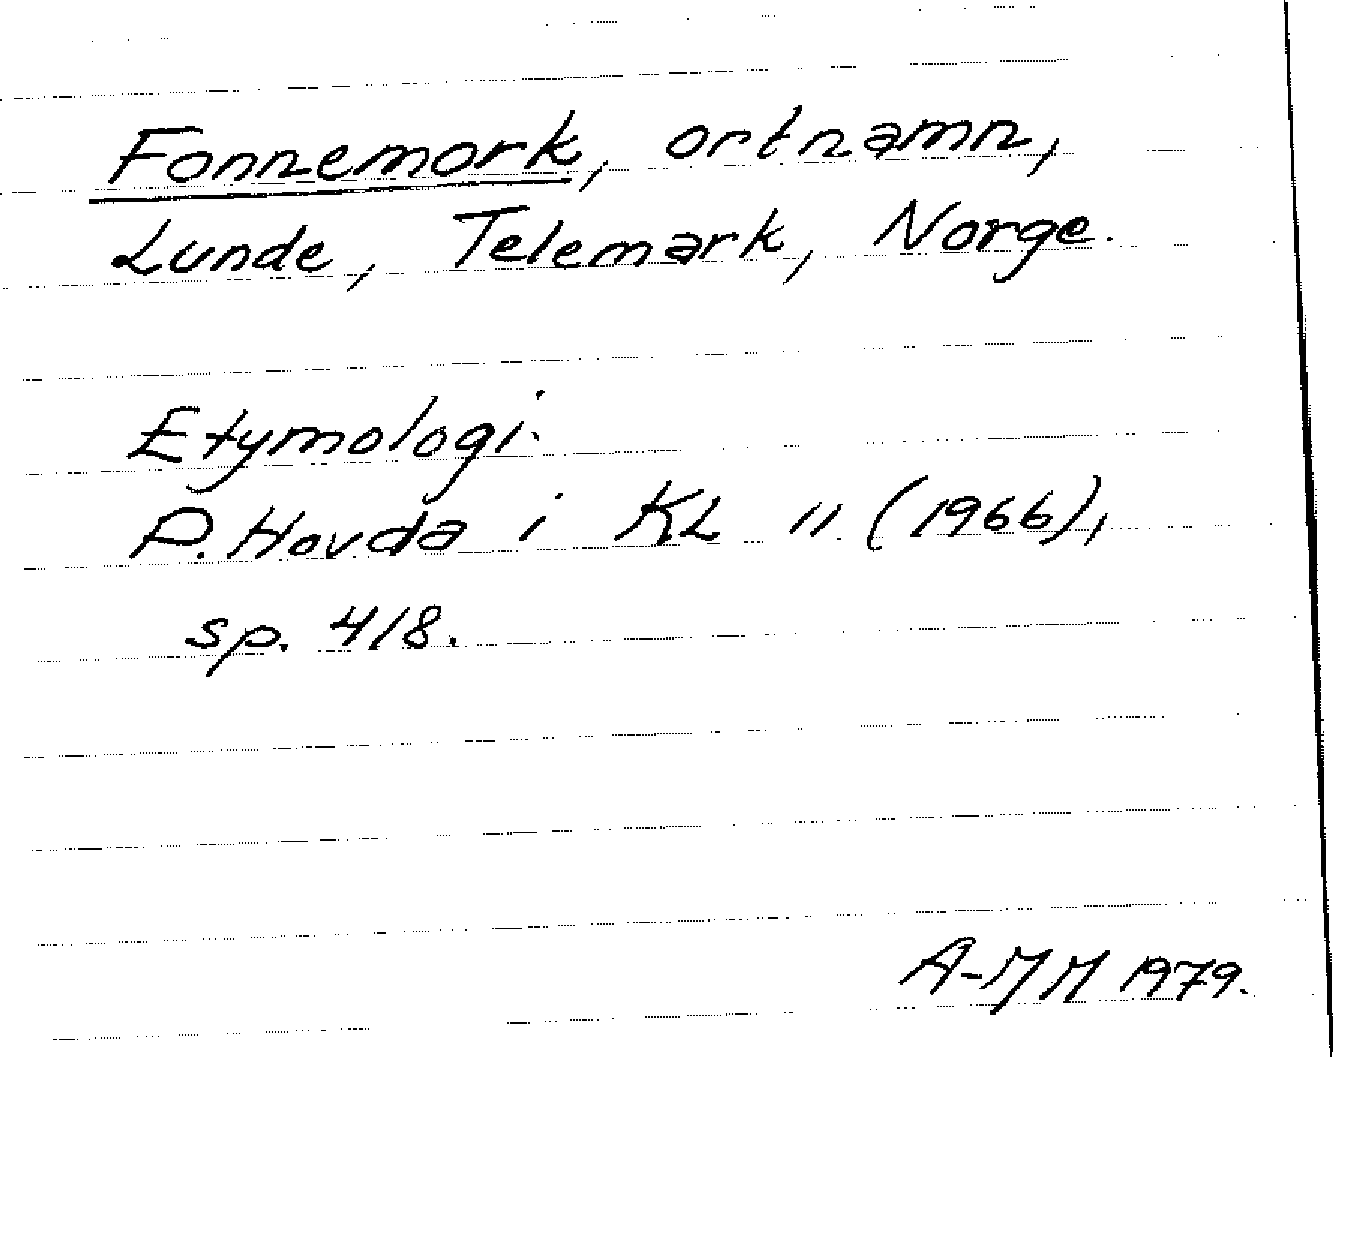 Fonnemork, ortnamn,
Lunde, Telemark, Norge.
Etymologi.
P. Hovda i KL 11 (1966),
sp. 418.
A-MM 1979.